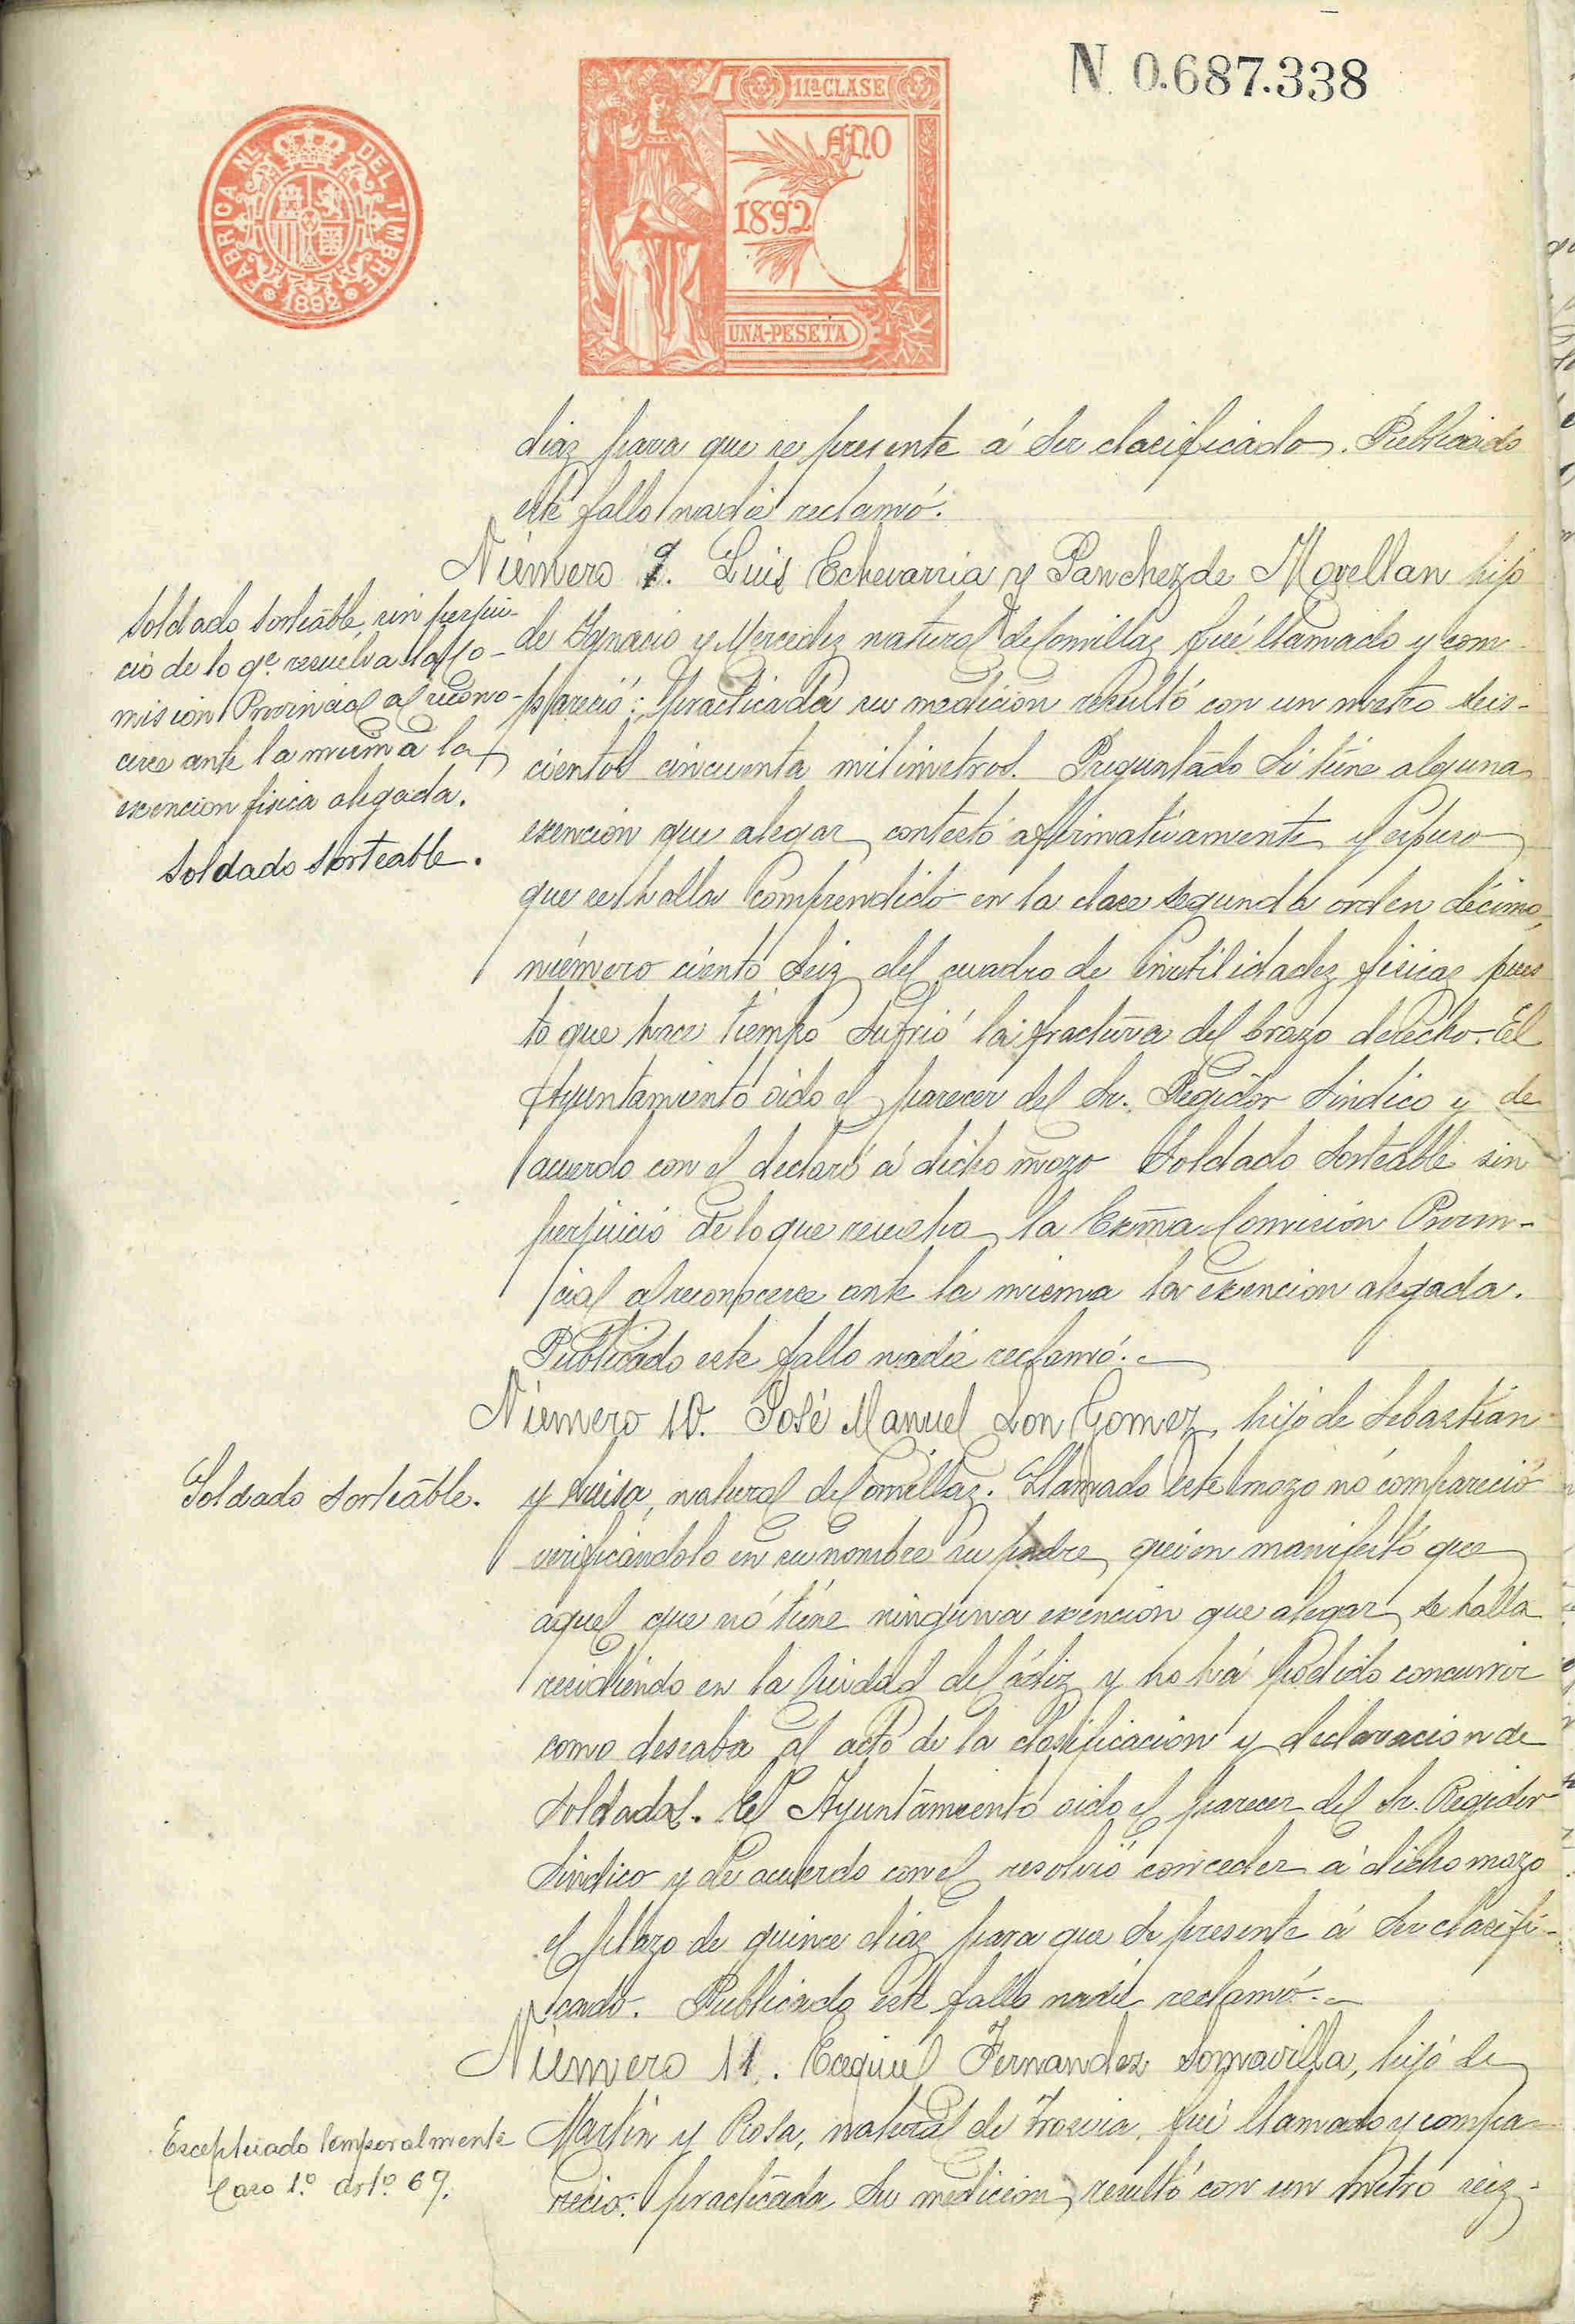 N. 0.687.338
FABRICA NL. DEL TIMBRE
1892
11ª CLASE
AÑO
1892
UNA-PESETA
diaz para que se presente á ser clacificado. Publicado
este fallo nadie reclamó.
Número 9. Luis Echevarria y Sanchez de Movellan hijo
de Ygnacio y Mercedez natural de Comillaz fué llamado y com-
pareció: practicada su medicion resultó con un metro seis-
cientos cincuenta milimetros. Preguntado si tiene alguna
exencion que alegar contestó afirmativamente y expuso
que se halla comprendido en la clace segunda orden décimo,
número ciento seiz del cuadro de inutilidadez fisicaz pues
to que hace tiempo sufrió la fractura del brazo derecho. El
Ayuntamiento oido el parecer del Sr. Regidor Sindico y de
acuerdo con el declaró á dicho mozo Soldado Sorteable sin
perjuicio de lo que resuelva la Exma Comision Provin-
cial al reconocerce ante la misma la exencion alegada.
Publicado este fallo nadie reclamó.
Soldado Sorteable, sin perjui-
cio de lo qe. resuelva la Co-
mision Provincial al recono-
cerce ante la misma la
exencion fisica alegada.
Soldado Sorteable.
Número 10. José Manuel Lon Gomez, hijo de Sebastian
y Luisa, natural de Comillaz. Llamado este mozo no compareció
verificandolo en su nombre su padre, quien manifestó que
aquel que nó tiene ninguna exencion que alegar, se halla
recidiendo en la Ciudad de Cádiz y no há podido concurrir
como deseaba al acto de la clasificacion y declaracion de
Soldados. El Ayuntamiento oido el parecer del Sr. Regidor
Sindico y de acuerdo con el resolvió conceder á dicho mozo
el plazo de quince diaz para que se presente á ser clacifi-
cado. Publicado este fallo nadie reclamó.
Soldado Sorteable.
Número 11. Ecequiel Fernandez Somavilla, hijo de
Martin y Rosa, natural de Trasvia, fué llamado y compa-
recio: practicada su medicion, resultó con un metro seiz-
Exceptuado temporalmente
Caso 1.º art.º 69.